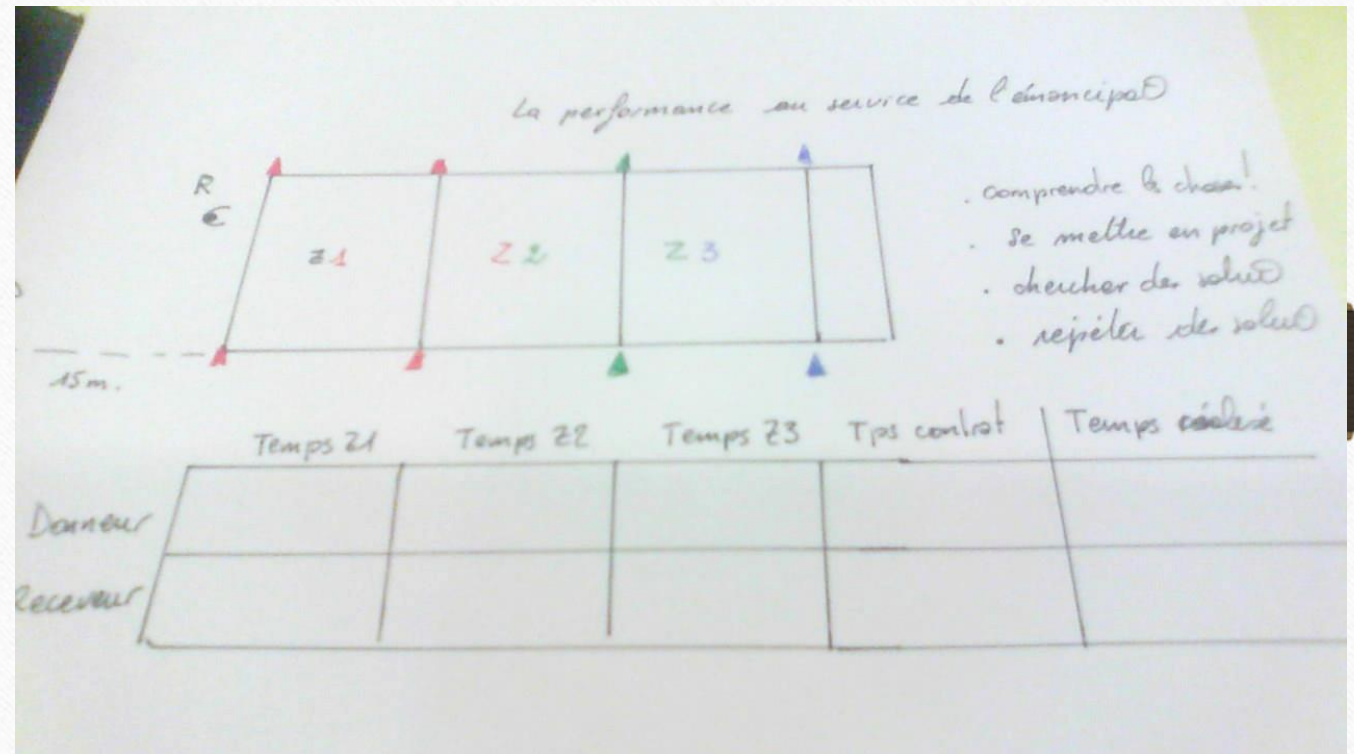 La performance au service de l'émancipaO
R
€
Z1
Z2
Z3
15m.
. comprendre la chose!
. se mettre en projet
. chercher des soluO
. répéter des soluO
Temps Z1 Temps Z2 Temps Z3 Tps contrat Temps réalisé
Donneur
Receveur